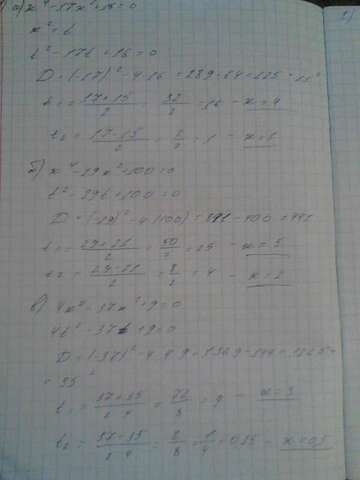 а) x⁴ - 17x² + 16 = 0
x² = t
t² - 17t + 16 = 0
D = (-17)² - 4·16 = 289 - 64 = 225 = 15²
t₁ = (17+15)/2 = 32/2 = 16 - x = 4
t₂ = (17-15)/2 = 2/2 = 1 - x = 1
б) x⁴ - 29x² + 100 = 0
t² - 29t + 100 = 0
D = (-29)² - 4·(100) = 841 - 400 = 441
t₁ = (29+21)/2 = 50/2 = 25 - x = 5
t₂ = (29-21)/2 = 8/2 = 4 - x = 2
в) 4x⁴ - 37x² + 9 = 0
4t² - 37t + 9 = 0
D = (-37)² - 4·4·9 = 1369 - 144 = 1225 =
= 35²
t₁ = (37+35)/2·4 = 72/8 = 9 - x = 3
t₂ = (37-35)/2·4 = 2/8 = 1/4 = 0,25 - x = 0,5